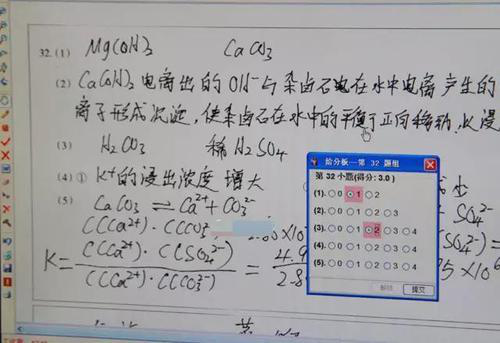 32.(1) Mg(OH)2 CaCO3
(2) Ca(OH)2电离出的OH-与杂卤石电在水中电离产生的
离子形成沉淀,使杂卤石在水中的平衡于正向移动,
(3) H2CO3 稀H2SO4
(4) ① K+的浸出浓度 增大
(5) CaCO3 ⇌ Ca2+ + CO32-
SO42-
C(Ca2+)·C(CO3
K= C(Ca2+)·C(SO42-) / C(Ca2+)·C(CO32-) = 4.9 / 2.8
给分板—第 32 题组
第 32 小题(得分: 3.0 )
(1). 0 1 2
(2). 0 1 2 3
(3). 0 1 2 3 4
(4). 0 1 2 3 4
(5). 0 1 2 3 4
提交